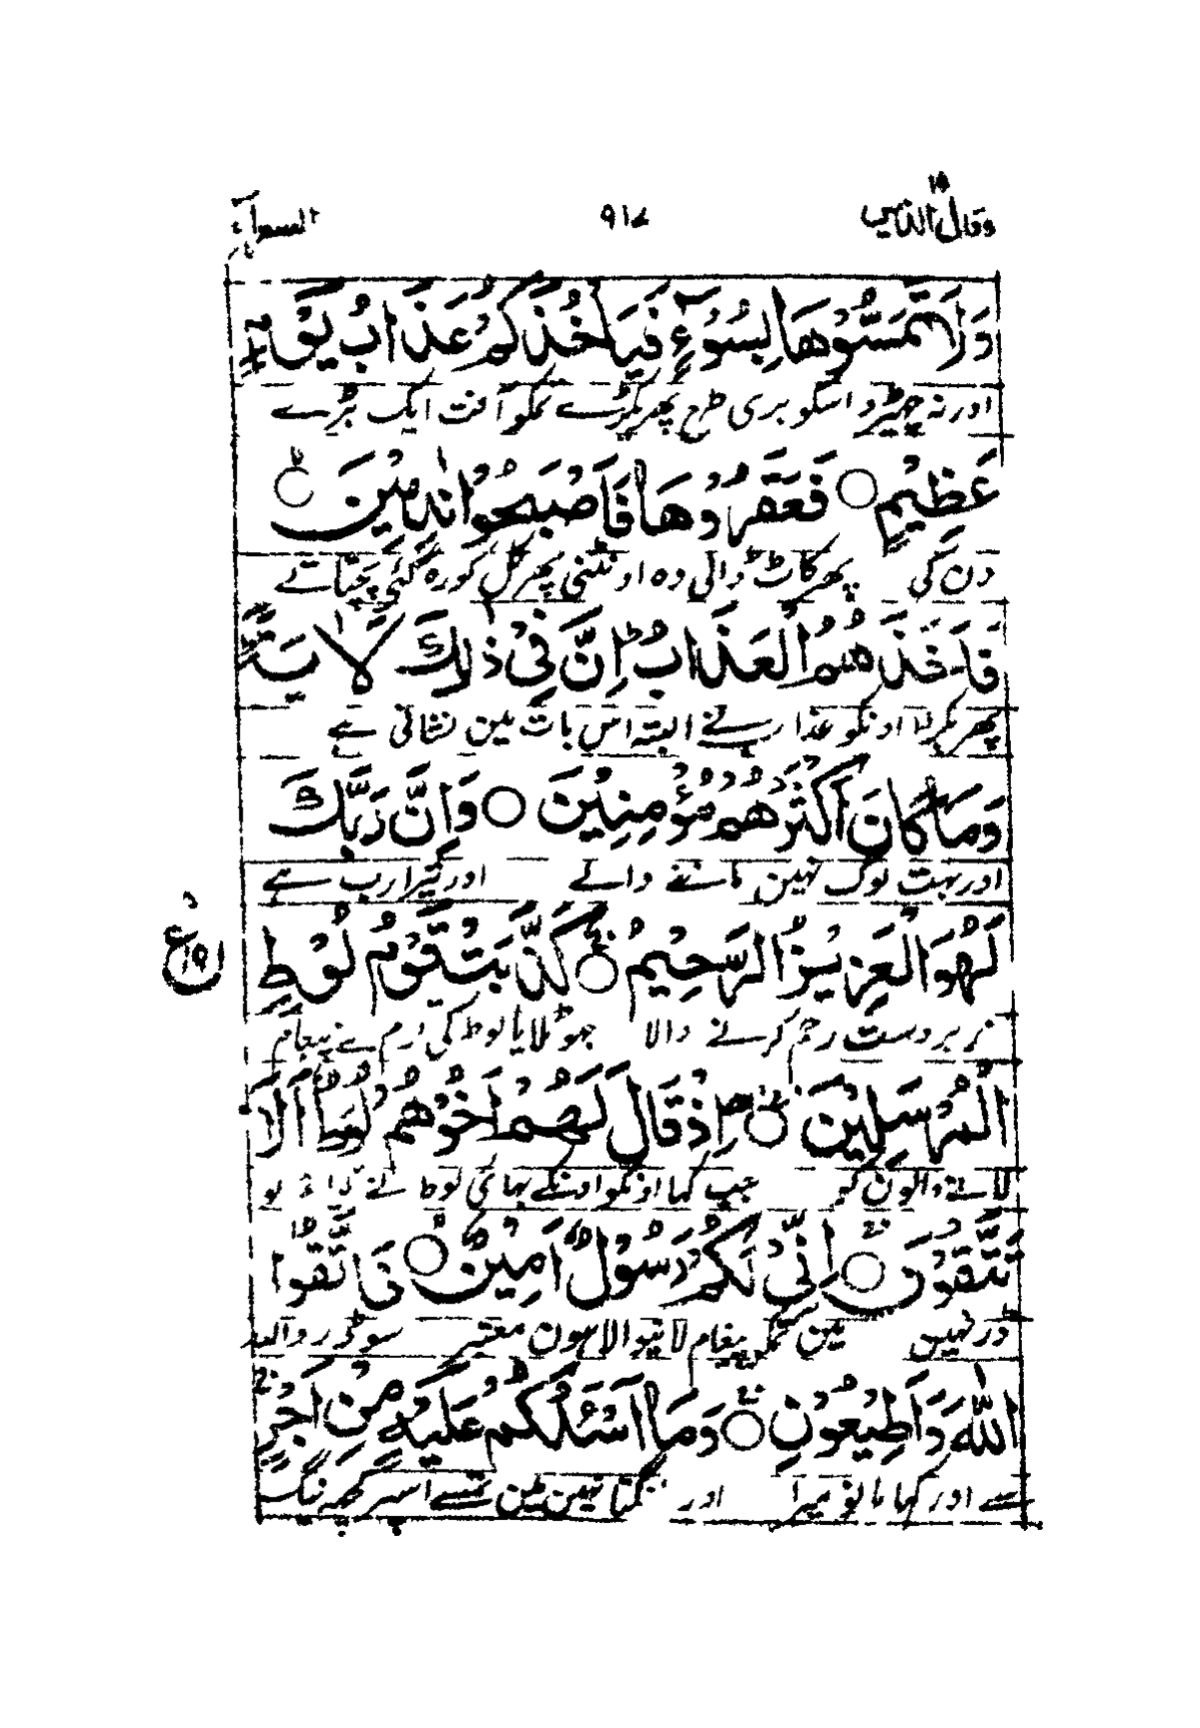 وقال الذين ١٩
٩١٧
الشعرآء
وَلَا تَمَسُّوْهَا بِسُوْٓءٍ فَيَاْخُذَكُمْ عَذَابُ يَوْمٍ
اور نہ چھیڑو اسکو بری طرح پھر پکڑے تمکو آفت ایک بڑے
عَظِيْمٍ ○ فَعَقَرُوْهَا فَاَصْبَحُوْا نٰدِمِيْنَ ○
دن کی پھر کاٹ ڈالی وہ اونٹنی پھر کل کو رہ گئی پچتاتے
فَاَخَذَهُمُ الْعَذَابُ ؕ اِنَّ فِيْ ذٰلِكَ لَاٰيَةً ؕ
پھر پکڑا اونکو عذاب نے البتہ اس بات مین نشانی ہے
وَمَا كَانَ اَكْثَرُهُمْ مُّؤْمِنِيْنَ ○ وَاِنَّ رَبَّكَ
اور بہت لوگ نہین ماننے والے اور تیرا رب ہے
لَهُوَ الْعَزِيْزُ الرَّحِيْمُ ○ كَذَّبَتْ قَوْمُ لُوْطِ
زبردست رحم کرنے والا جھوٹلایا لوط کی قوم نے پیغام
الْمُرْسَلِيْنَ ○ اِذْ قَالَ لَهُمْ اَخُوْهُمْ لُوْطٌ اَلَا
لانے والون کو جب کہا اونکو اونکے بھائی لوط نے کیا تم کو
تَتَّقُوْنَ ○ اِنِّيْ لَكُمْ رَسُوْلٌ اَمِيْنٌ ○ فَاتَّقُوا
ڈر نہیں مین تمکو پیغام لانیوالا ہون معتبر سو ڈرو اللہ
اللّٰهَ وَاَطِيْعُوْنِ ○ وَمَآ اَسْـَٔلُكُمْ عَلَيْهِ مِنْ اَجْرٍ
سے اور کہا مانو میرا اور مانگتا نہین مین تمسے اسپر کچھ نیگ